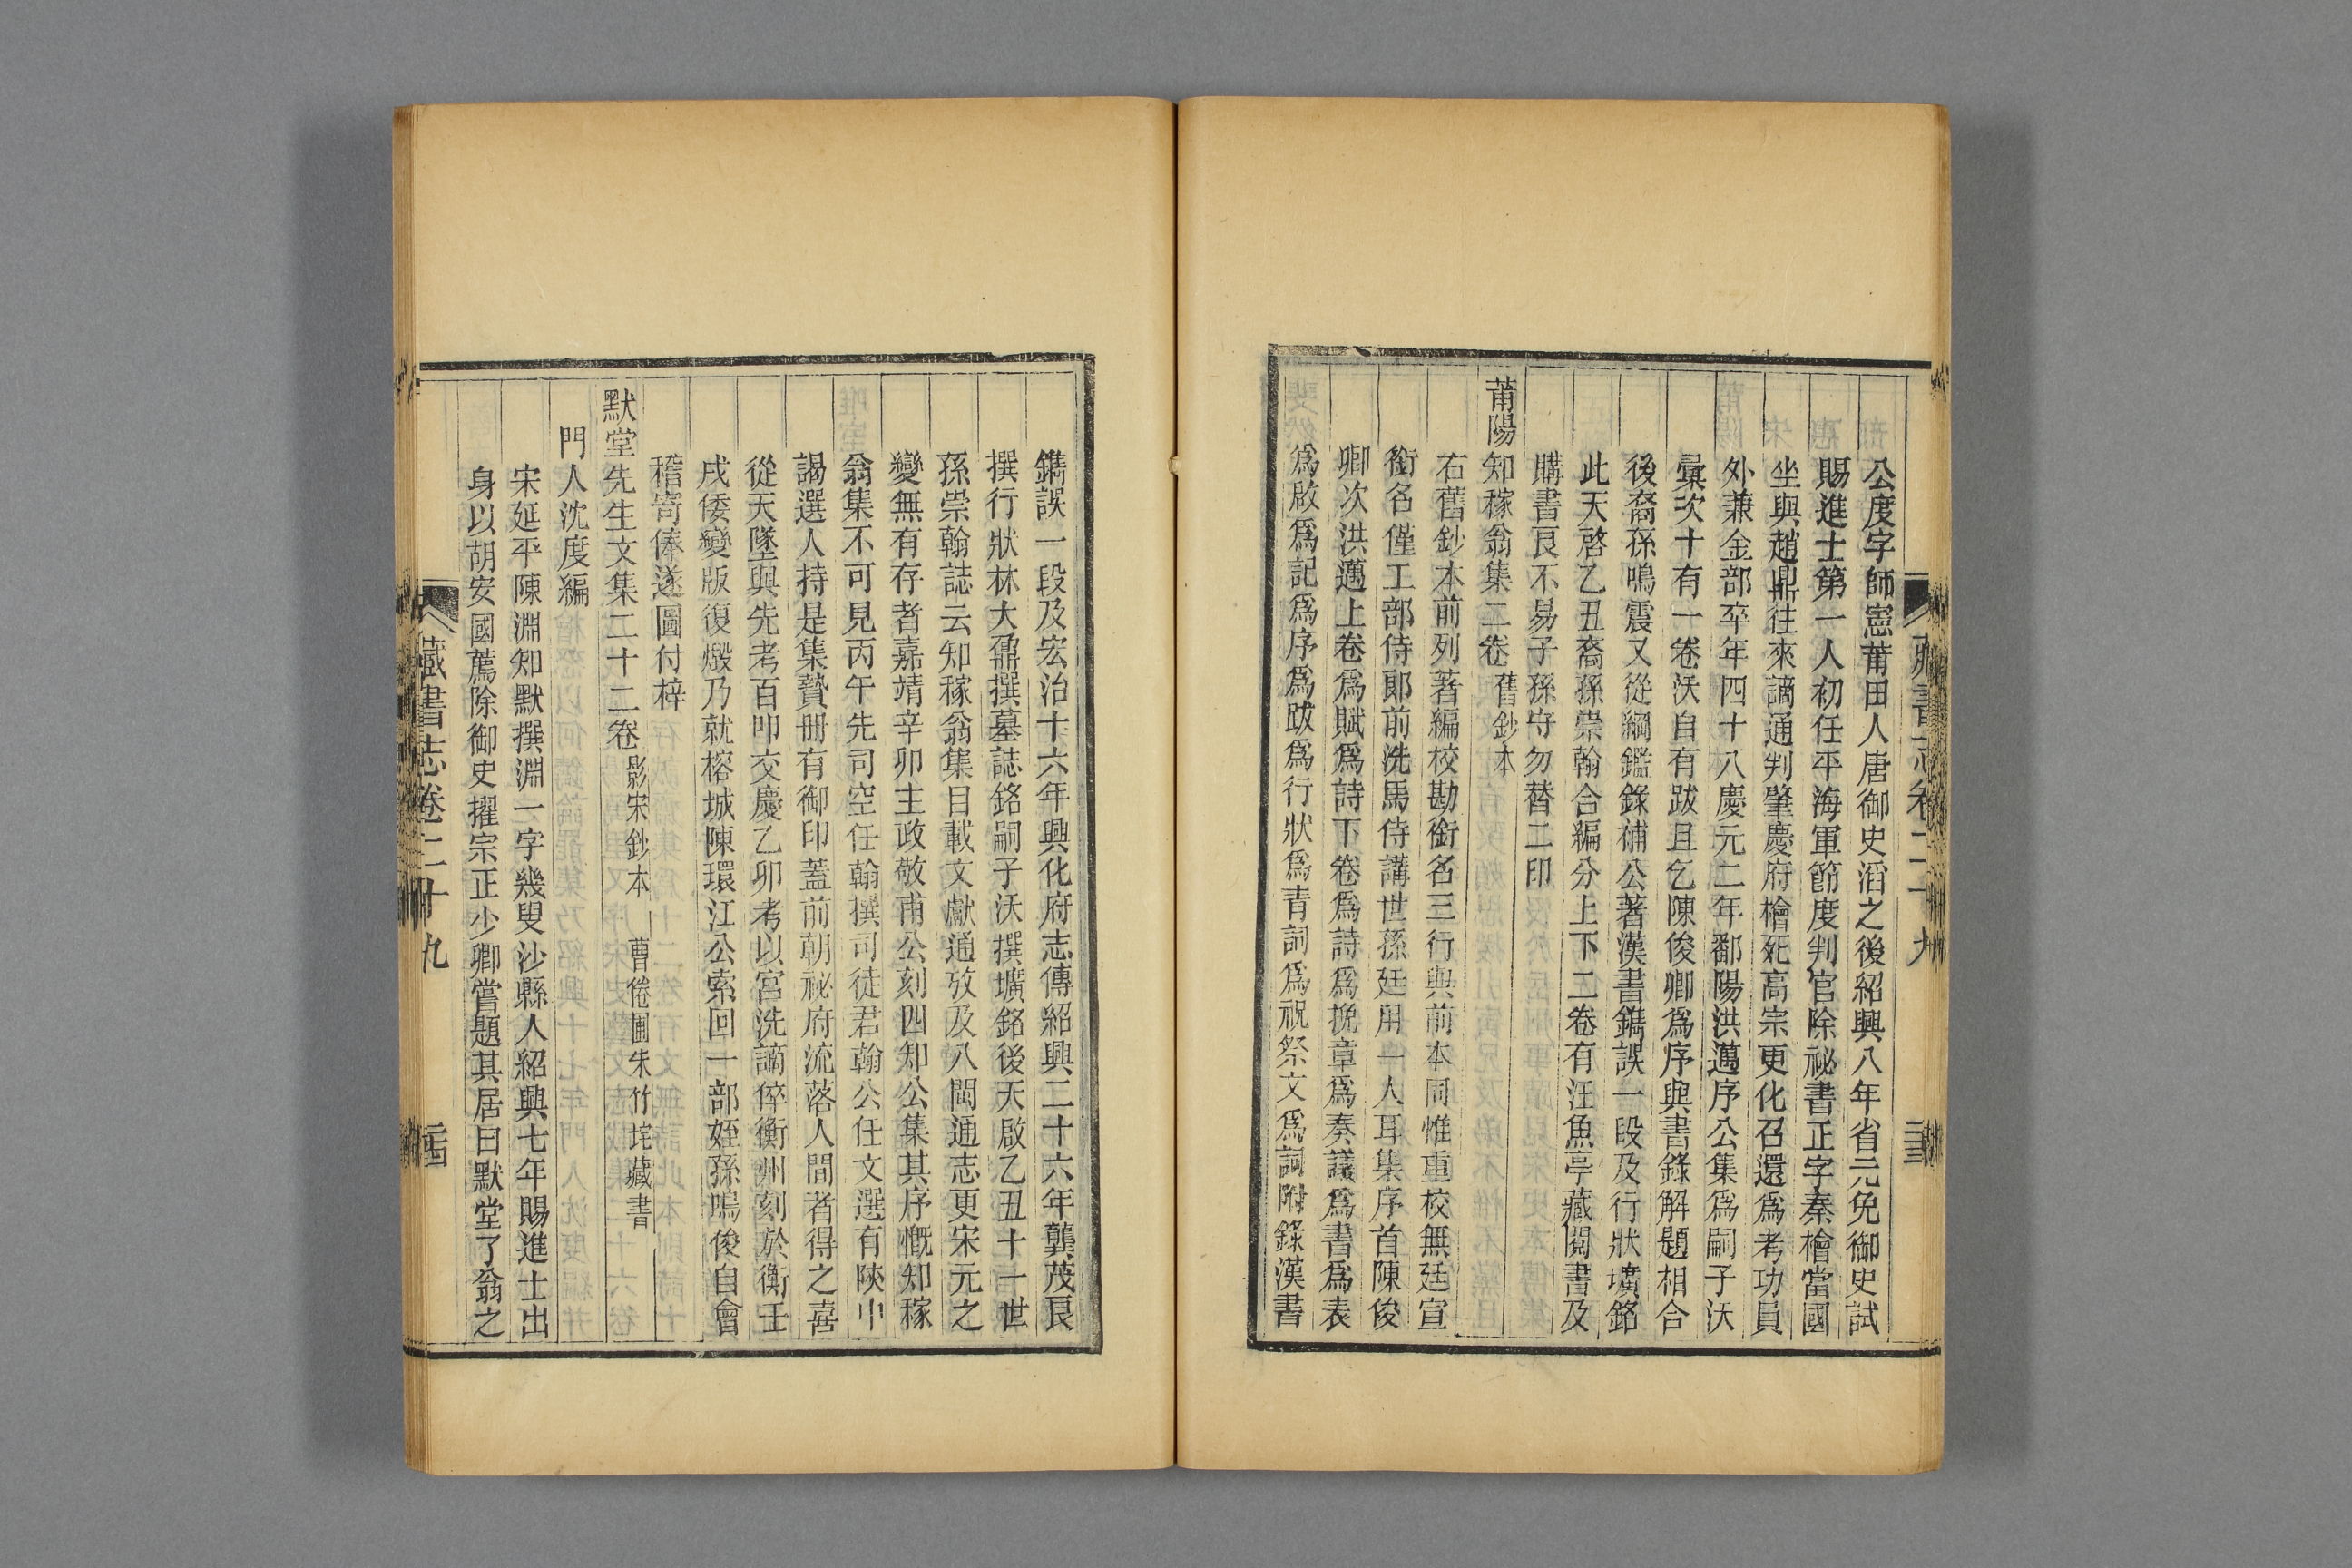 公度字師憲莆田人唐御史滔之後紹興八年省元免御史試
賜進士第一人初任平海軍節度判官除祕書正字秦檜當國
坐與趙鼎往來謫通判肇慶府檜死高宗更化召還爲考功員
外兼金部卒年四十八慶元二年鄱陽洪邁序公集爲嗣子沃
彙次十有一卷沃自有跋且乞陳俊卿爲序與書錄解題相合
後裔孫鳴震又從綱鑑錄補公著漢書鐫誤一段及行狀壙銘
此天啓乙丑裔孫崇翰合編分上下二卷有汪魚亭藏閱書及
購書良不易子孫守勿替二印
莆陽知稼翁集二卷 舊鈔本
右舊鈔本前列著編校勘銜名三行與前本同惟重校無廷宣
銜名僅工部侍郞前洗馬侍講世孫廷用一人耳集序首陳俊
卿次洪邁上卷爲賦爲詩下卷爲詩爲挽章爲奏議爲書爲表
爲啟爲記爲序爲跋爲行狀爲青詞爲祝祭文爲詞附錄漢書
鐫誤一段及宏治十六年興化府志傳紹興二十六年龔茂良
撰行狀林大鼐撰墓誌銘嗣子沃撰壙銘後天啟乙丑十一世
孫崇翰誌云知稼翁集目載文獻通攷及八閩通志更宋元之
變無有存者嘉靖辛卯主政敬甫公刻四知公集其序慨知稼
翁集不可見丙午先司空任翰撰司徒君翰公任文選有陝中
謁選人持是集贄册有御印蓋前朝祕府流落人間者得之喜
從天墜與先考百叩交慶乙卯考以宮洗謫倅衡州刻於衡壬
戌倭變版復燬乃就榕城陳環江公索回一部姪孫鳴俊自會
稽寄俸遂圖付梓
默堂先生文集二十二卷 影宋鈔本 曹倦圃朱竹垞藏書
門人沈度編
宋延平陳淵知默撰淵一字幾叟沙縣人紹興七年賜進士出
身以胡安國薦除御史擢宗正少卿嘗題其居曰默堂了翁之
藏書志卷二十九